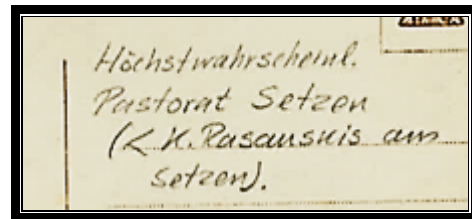 Höchstwahrscheinl.
Pastorat Setzen
(< K. Rasausnis am
Setzen).